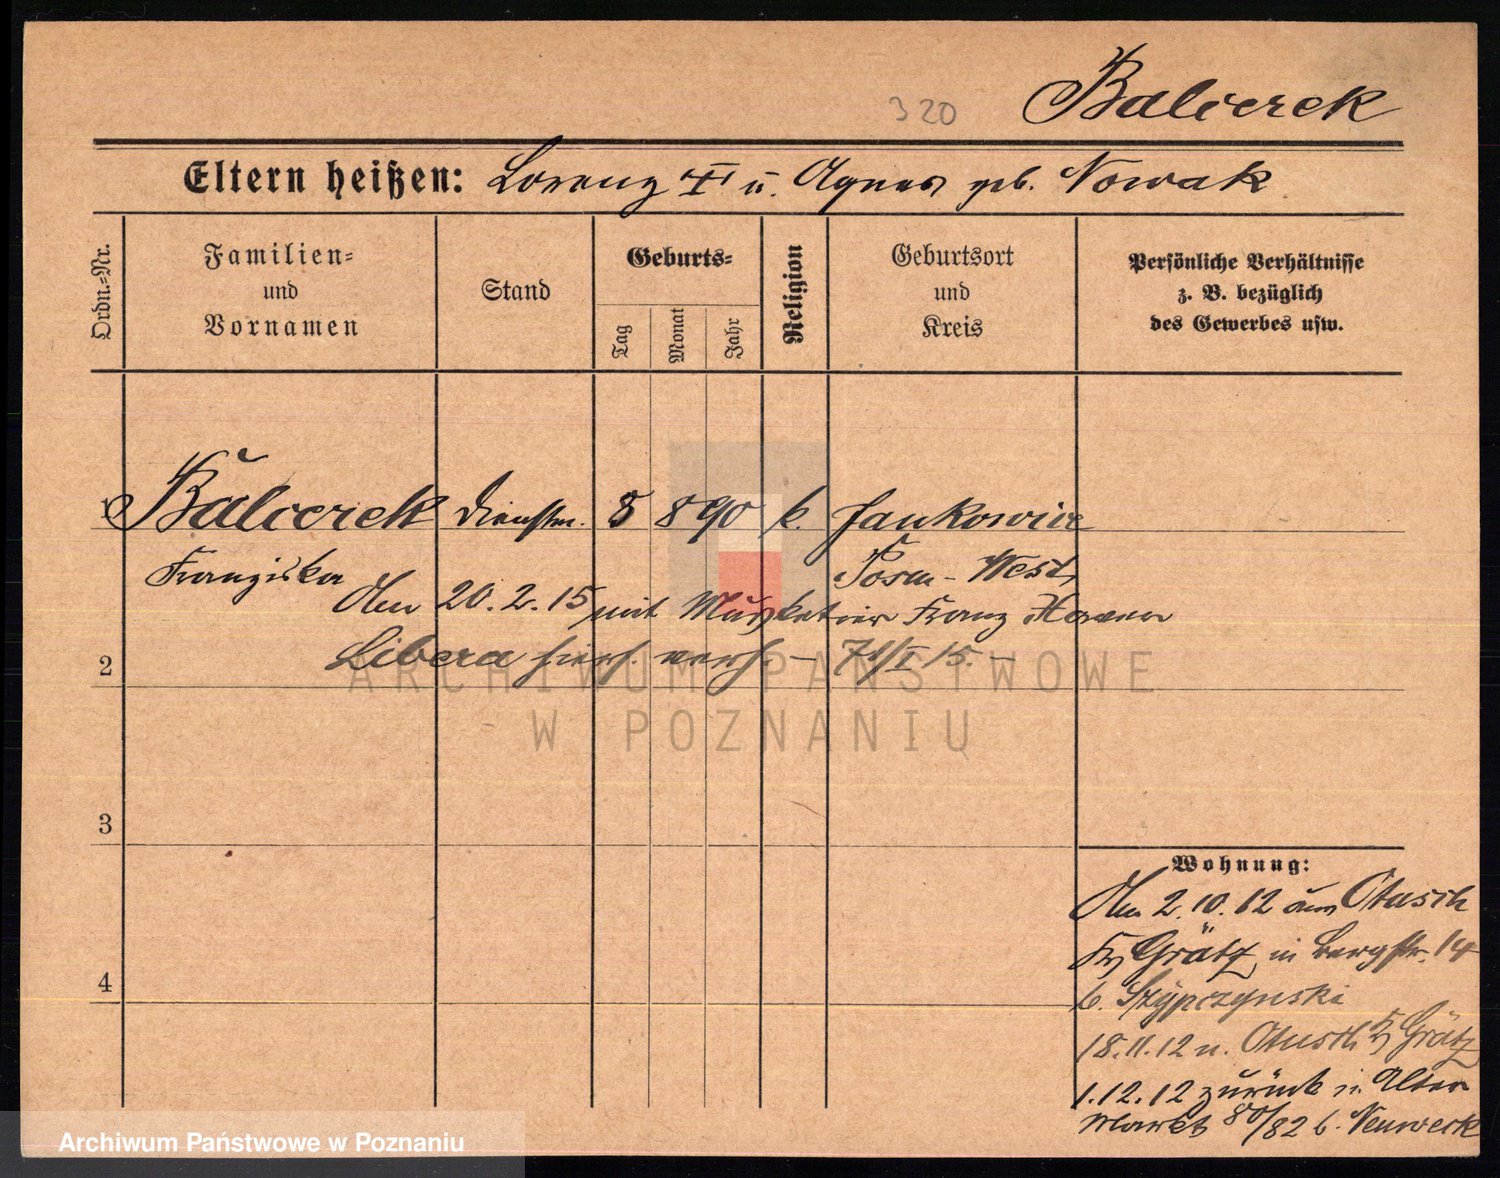 320
Balcerek
Eltern heißen: Lorenz II u. Agnes geb. Nowak
Ordn.=Nr.
Familien=
und
Vornamen
Stand
Geburts=
Tag
Monat
Jahr
Religion
Geburtsort
und
Kreis
Persönliche Verhältnisse
z. B. bezüglich
des Gewerbes usw.
1 Balcerek Dienstm. 5 8 90 k. Jankowice
Franziska Posen-West
Am 20.2.15 mit Musketier Franz
2 Libera hier verh. - 71/I 15. -
ARCHIWUM PAŃSTWOWE
W POZNANIU
3
4
Wohnung:
Am 2.10.12 aus Otusch
Kr Grätz in Bergstr. 14
b. Szypczynski
18.11.12 n. Otusch Kr Grätz
1.12.12 zurück in Alter
Markt 80/82 b. Neuwerk
Archiwum Państwowe w Poznaniu